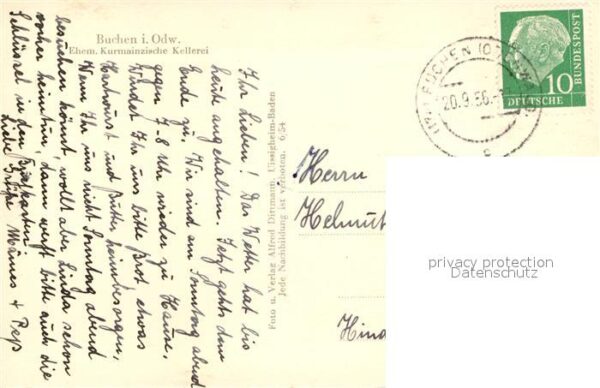 Buchen i. Odw.
Ehem. Kurmainzische Kellerei
Ihr Lieben! Das Wetter hat bis
heute angehalten. Jetzt gehts dem
Ende zu. Wir sind am Sonntag abend
gegen 7-8 Uhr wieder zu Hause.
Würdet Ihr uns bitte Brot, etwas
Hartwurst und Butter heimbesorgen,
Wenn Ihr uns nicht Sonntag abend
besuchen könnt, wollt aber Linda schon
vorher heimtun, dann werft bitte auch die
Schlüssel in den Briefkasten
Liebe Grüße Männes + Peps
Foto u. Verlag Alfred Dittmann, Uissigheim-Baden
Jede Nachbildung ist verboten. 6/54
DEUTSCHE
BUNDESPOST
10
BUCHEN (ODENWALD)
20.9.56
Herrn
Helmut
Hind
privacy protection
Datenschutz